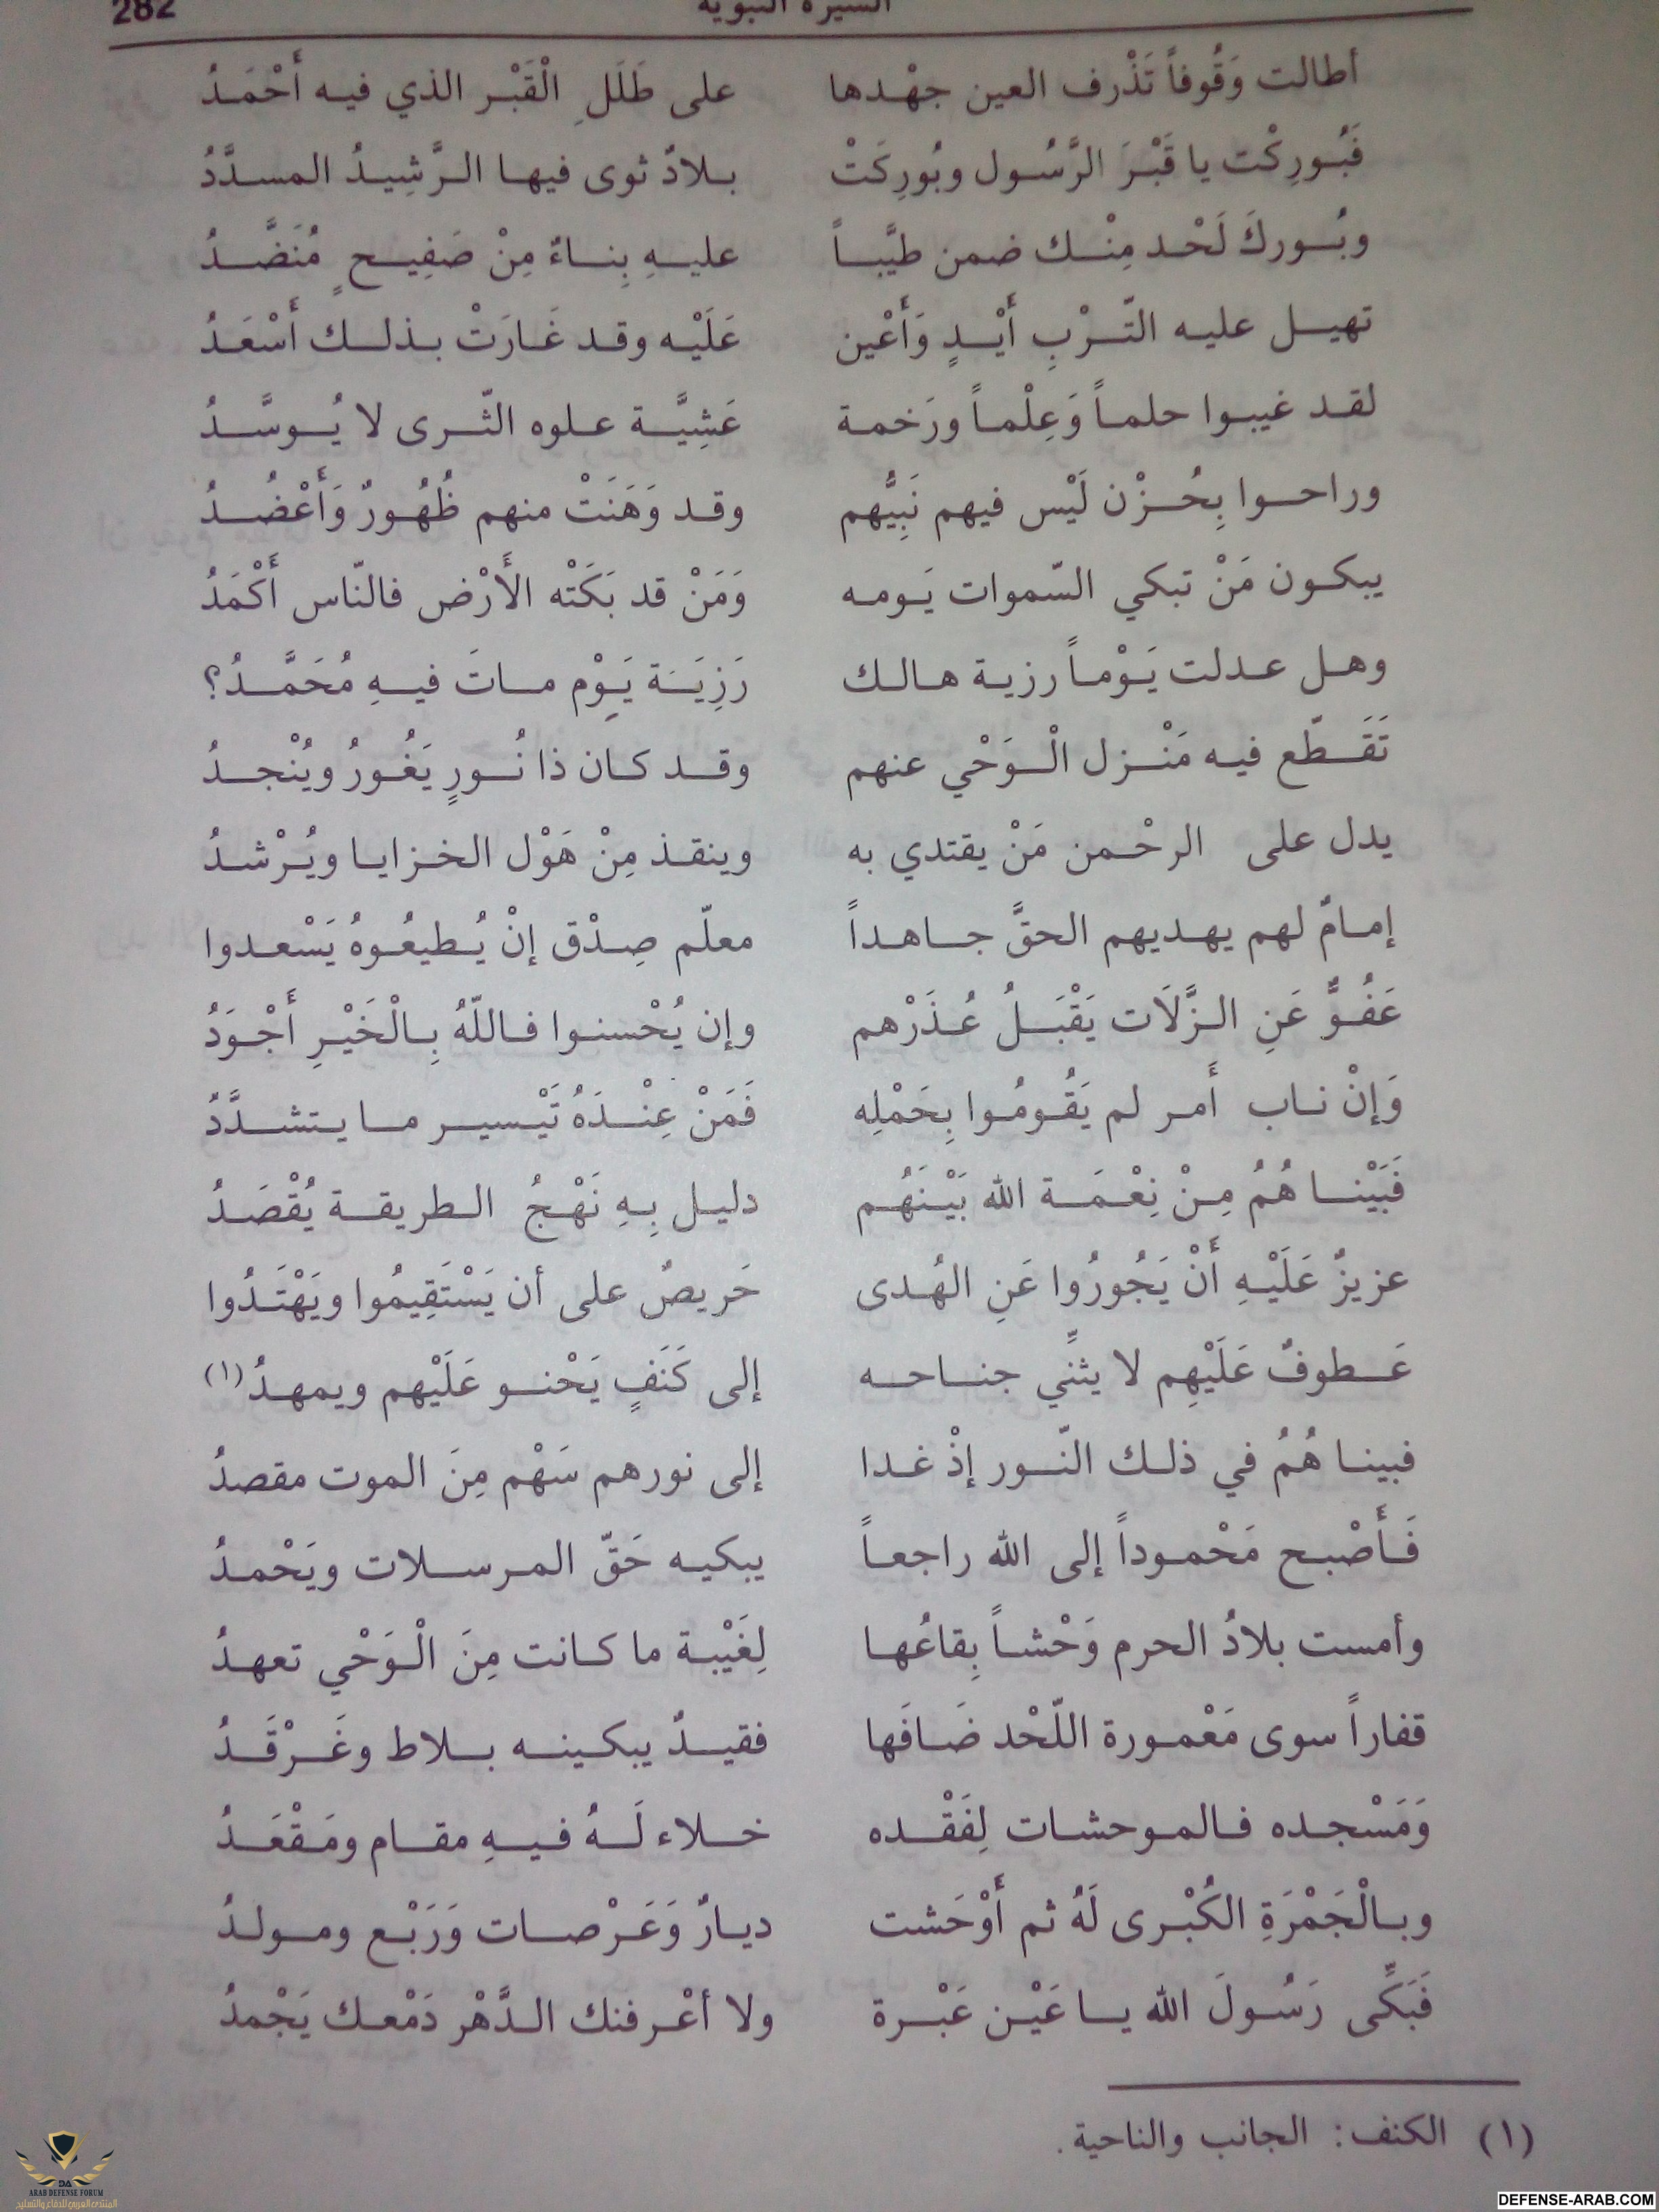 282 السيرة النبوية
أطالت وَقُوفاً تَذْرف العين جهْدها على طَلَلِ الْقَبْر الذي فيه أَحْمَدُ
فَبُورِكْت يا قَبْرَ الرَّسُول وبُورِكَتْ بلادٌ ثوى فيها الرَّشِيدُ المسدَّدُ
وبُوركَ لَحْد مِنْك ضمن طيَّباً عليهِ بِناءٌ مِنْ صَفِيحٍ مُنَضَّدُ
تهيل عليه التّرْبِ أَيْدٍ وَأَعْين عَلَيْه وقد غَارَتْ بذلك أَسْعَدُ
لقد غيبوا حلماً وَعِلْماً ورَخمة عَشِيَّة علوه الثّرى لا يُوسَّدُ
وراحوا بِحُزْن لَيْس فيهم نَبِيُّهم وقد وَهَنَتْ منهم ظُهُورٌ وَأَعْضُدُ
يبكون مَنْ تبكي السّموات يَومه وَمَنْ قد بَكَتْه الأَرْض فالنّاس أَكْمَدُ
وهل عدلت يَوْماً رزية هالك رَزِيَة يَوِْم ماتَ فيهِ مُحَمَّدُ؟
تَقَطّع فيه مَنْزل الْوَحْي عنهم وقد كان ذا نُورٍ يَغُورُ ويُنْجدُ
يدل على الرحْمن مَنْ يقتدي به وينقذ مِنْ هَوْل الخزايا ويُرْشدُ
إمامٌ لهم يهديهم الحقَّ جاهداً معلّم صِدْق إنْ يُطيعُوهُ يَسْعدوا
عَفُوٌّ عَنِ الزَّلَات يَقْبَلُ عُذَرْهم وإن يُحْسنوا فاللّهُ بِالْخَيْرِ أَجْوَدُ
وَإنْ ناب أَمر لم يَقُومُوا بِحَمْلِه فَمَنْ عِنْدَهُ تَيْسير ما يتشدَّدُ
فَبَيْنا هُمُ مِنْ نِعْمَة الله بَيْنَهُم دليل بِهِ نَهْجُ الطريقة يُقْصَدُ
عزيزٌ عَلَيْهِ أَنْ يَجُورُوا عَنِ الهُدى حَريصٌ على أن يَسْتَقِيمُوا ويَهْتَدُوا
عَطوفٌ عَلَيْهِم لا يثنِّي جناحه إلى كَنَفٍ يَحْنو عَلَيْهم ويمهدُ(١)
فبينا هُمُ في ذلك النّور إذْ غدا إلى نورهم سَهْم مِنَ الموت مقصدُ
فَأَصْبح مَحْموداً إلى الله راجعاً يبكيه حَقّ المرسلات ويَحْمدُ
وأمست بلادُ الحرم وَحْشاً بِقاعُها لِغَيْبة ما كانت مِنَ الْوَحْي تعهدُ
قفاراً سوى مَعْمورة اللّحْد ضَافَها فقيدٌ يبكينه بلاط وغَرْقَدُ
وَمَسْجده فالموحشات لِفَقْده خلاء لَهُ فيهِ مقام ومَقْعَدُ
وبالْجَمْرَةِ الكُبْرى لَهُ ثم أَوْحَشت ديارٌ وَعَرْصات وَرَبْع ومولدُ
فَبَكِّى رَسُولَ الله يا عَيْن عَبْرة ولا أعْرفنك الدَّهْر دَمْعك يَجْمدُ
(١) الكنف: الجانب والناحية.
DA
ARAB DEFENSE FORUM
المنتدى العربي للدفاع والتسليح
DEFENSE-ARAB.COM